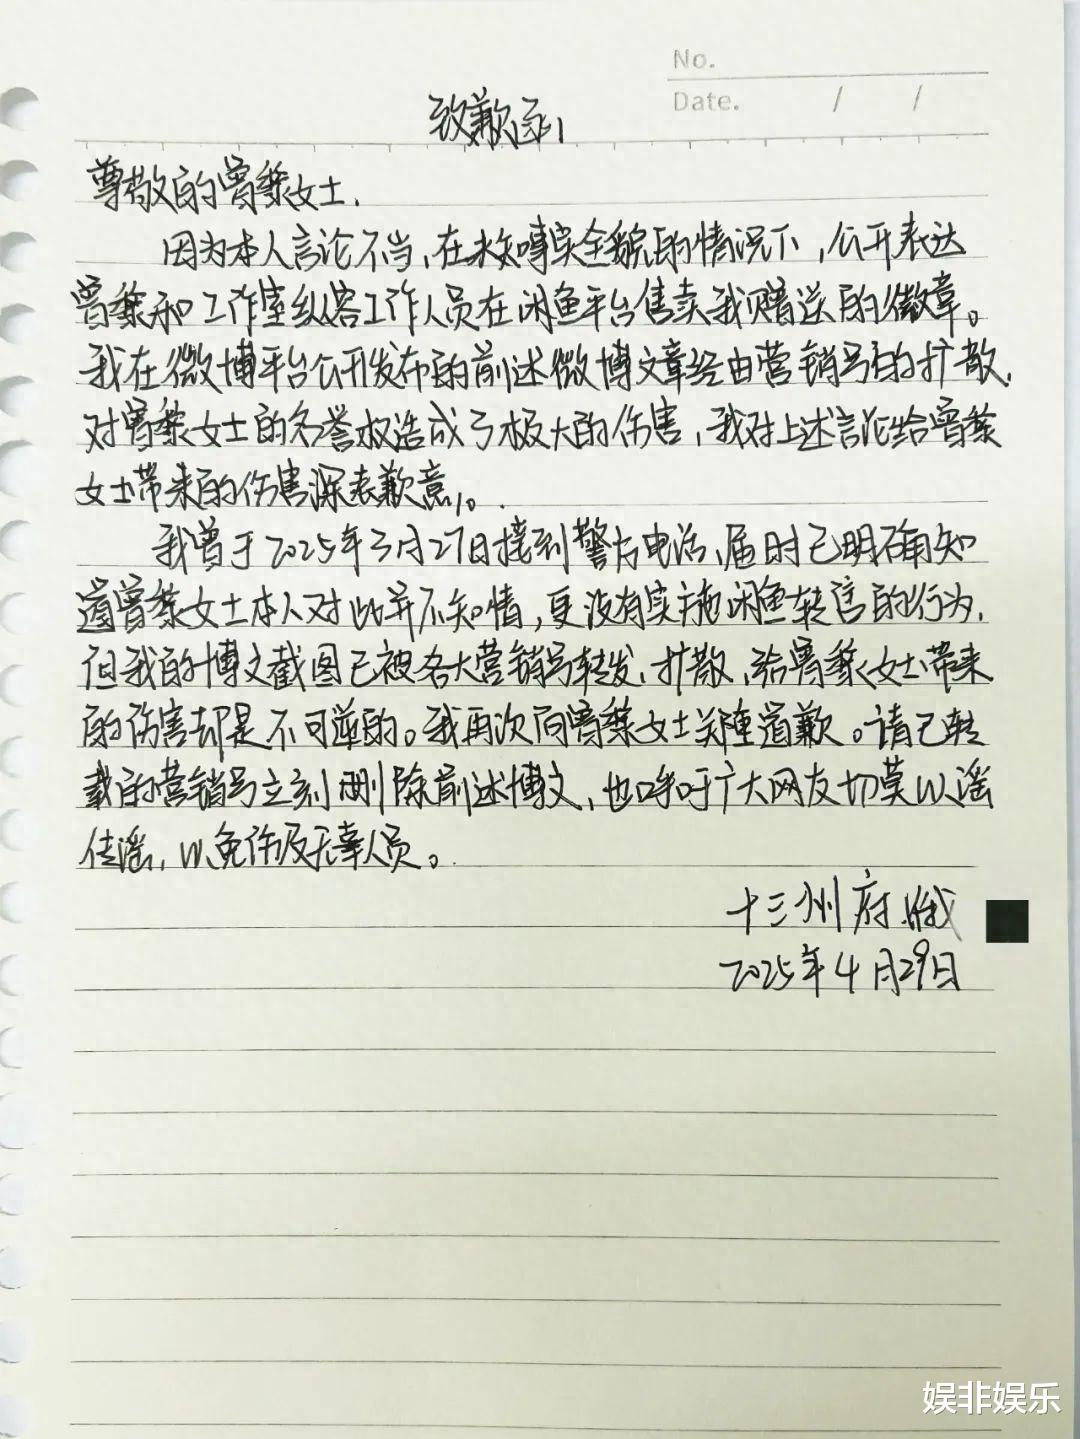 No.
Date. / /
致歉函
尊敬的曾黎女士.
因为本人言论不当,在未知事实全貌的情况下,公开表达
曾黎和工作室纵容工作人员在闲鱼平台售卖我赠送的徽章。
我在微博平台公开发布的前述微博文章经由营销号的扩散,
对曾黎女士的名誉权造成了极大的伤害,我对上述言论给曾黎
女士带来的伤害深表歉意。
我曾于2025年3月27日接到警方电话,届时已明确知
道曾黎女士本人对此并不知情,更没有实施闲鱼转售的行为,
但我的博文截图已被各大营销号转发、扩散,给曾黎女士带来
的伤害却是不可逆的。我再次向曾黎女士郑重道歉。请已转
载的营销号立刻删除前述博文,也呼吁广大网友切莫以谣
传谣,以免伤及无辜人员。
十三州府
2025年4月29日
娱非娱乐